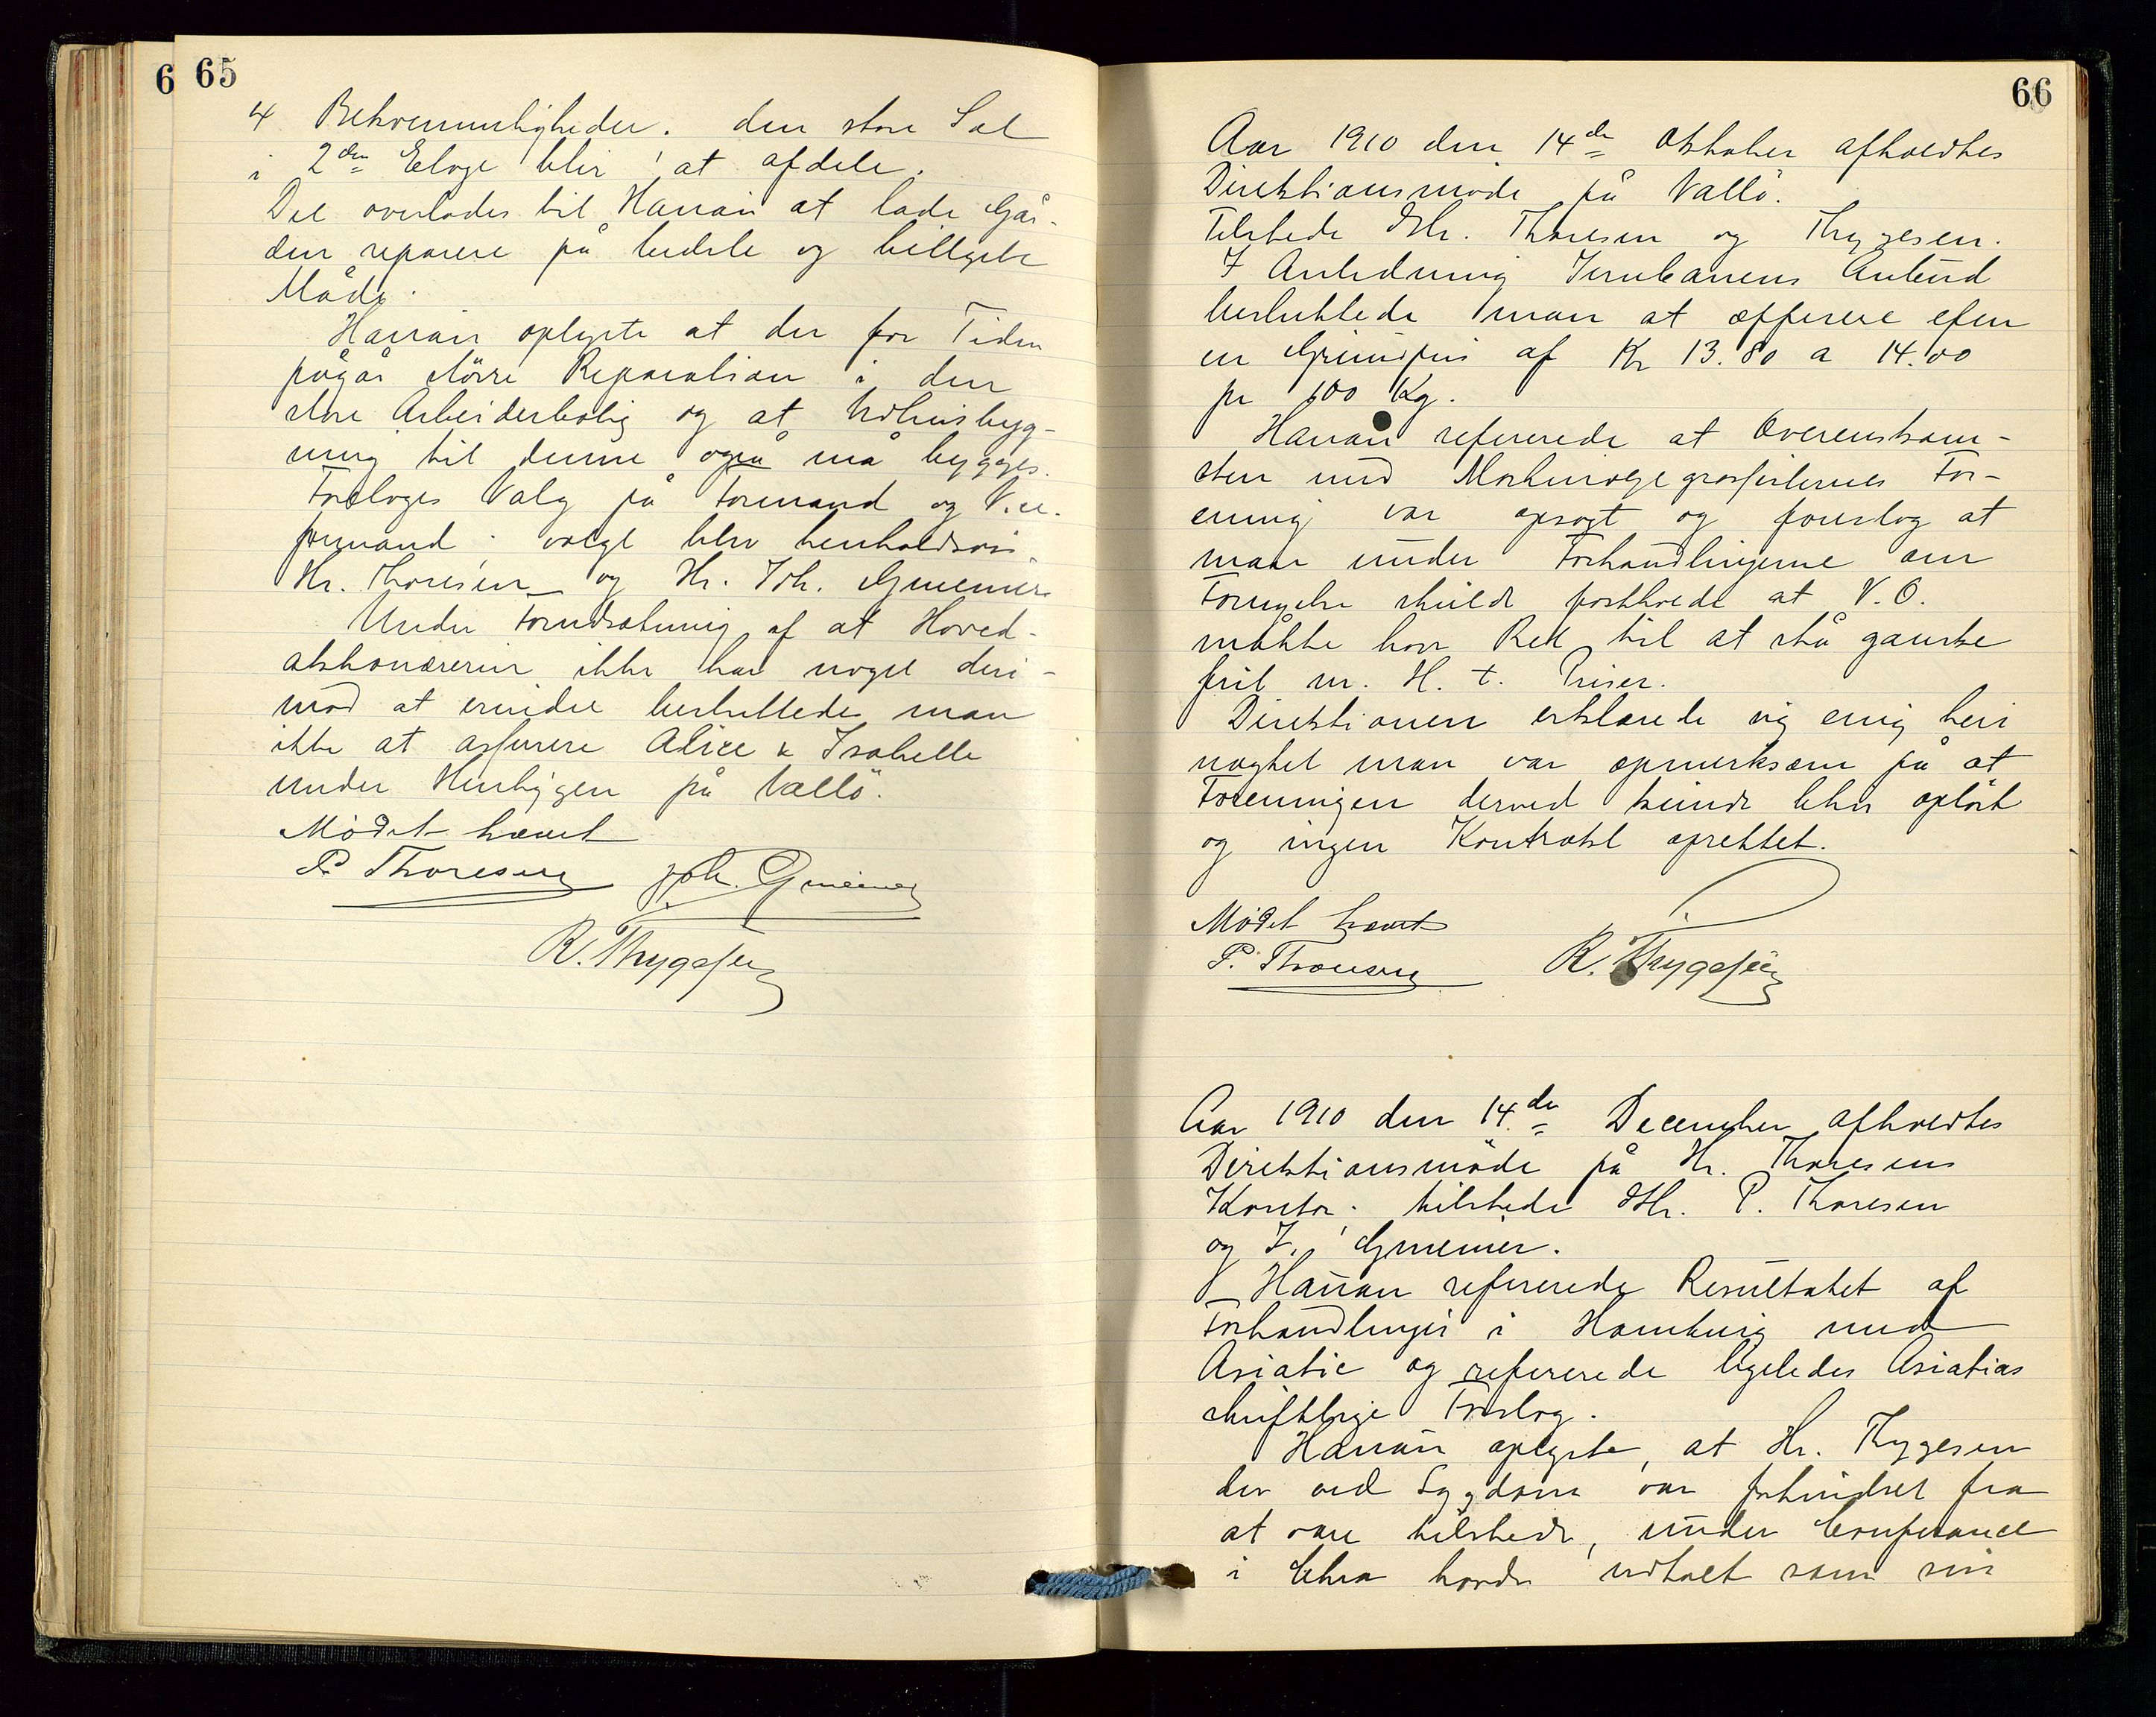 6 65
4 Bekvemmeligheder. den store Sal
i 2den Etage blir at afdele.
Det overlades til Hanan at lade Går-
den reparere på bedste og billigste
Måde.
Hanan oplyste at der for Tiden
pågår större Reparation i den
store Arbeiderbolig og at Udhusbyg-
ning til denne også må bygges.
Foretoges Valg på Formand og Vice-
formand. valgt blev henholdsvis
Hr. Thoresen og Hr. Joh. Gmeiner.
Under Forudsætning af at Hoved-
aktionærerne ikke har noget deri-
mod at erindre besluttede man
ikke at assurere Alice & Isabelle
under Henliggen på Vallö.
Mödet hævet
P Thoresen Joh. Gmeiner
R. Thygesen
66
Aar 1910 den 14de Oktober afholdtes
Direktionsmöde på Vallö.
Tilstede Hr. Thoresen og Thygesen.
I Anledning Jernbanens Anbud
besluttede man at offerere efter
en Grundpris af Kr 13.80 a 14.00
pr 100 Kg.
Hanan refererede at Overenskom-
sten med Maskinoljegrossisternes For-
ening var opsagt og foreslog at
man under Forhandlingerne om
Fornyelse skulde fastholde at V.O.
måtte have Ret til at stå ganske
frit m. H. t. Priser.
Direktionen erklærede sig enig heri
uagtet man var opmerksom på at
Foreningen derved kunde blive oplöst
og ingen Kontrakt oprettet.
Mödet hævet
P. Thoresen R. Thygesen
Aar 1910 den 14de December afholdtes
Direktionsmöde på Hr. Thoresens
Kontor. tilstede Hr. P. Thoresen
og J. Gmeiner.
Hanan refererede Resultatet af
Forhandlinger i Hamburg med
Asiatic og refererede ligeledes Asiatics
skriftlige Forslag.
Hanan oplyste, at Hr. Thygesen
der ved Sygdom var forhindret fra
at være tilstede, under Conferance
i Chra havde udtalt som sin